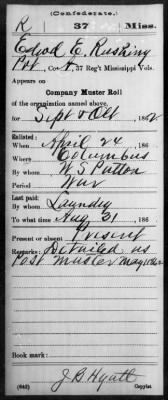 (Confederate.)
R 37 Miss.
Edwd E. Rushing
Pvt, Co. A, 37 Reg't Mississippi Vols.
Appears on
Company Muster Roll
of the organization named above,
for Sept & Oct, 1862
Enlisted:
When April 24, 186
Where Columbus
By whom W. S. Patton
Period War
Last paid:
By whom Laundry
To what time Aug 31, 186
Present or absent Present
Remarks: Detailed as
Post Master May 1862
Book mark:
J. B. Hyatt
(642) Copyist.